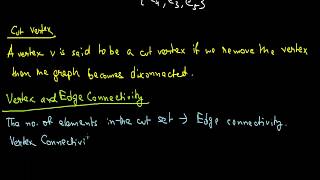 { e4, e3, e5}
Cut vertex
A vertex v is said to be a cut vertex if we remove the vertex
then the graph becomes disconnected.
Vertex and Edge Connectivity
The no. of elements in the cut set → Edge connectivity.
Vertex Connectivi